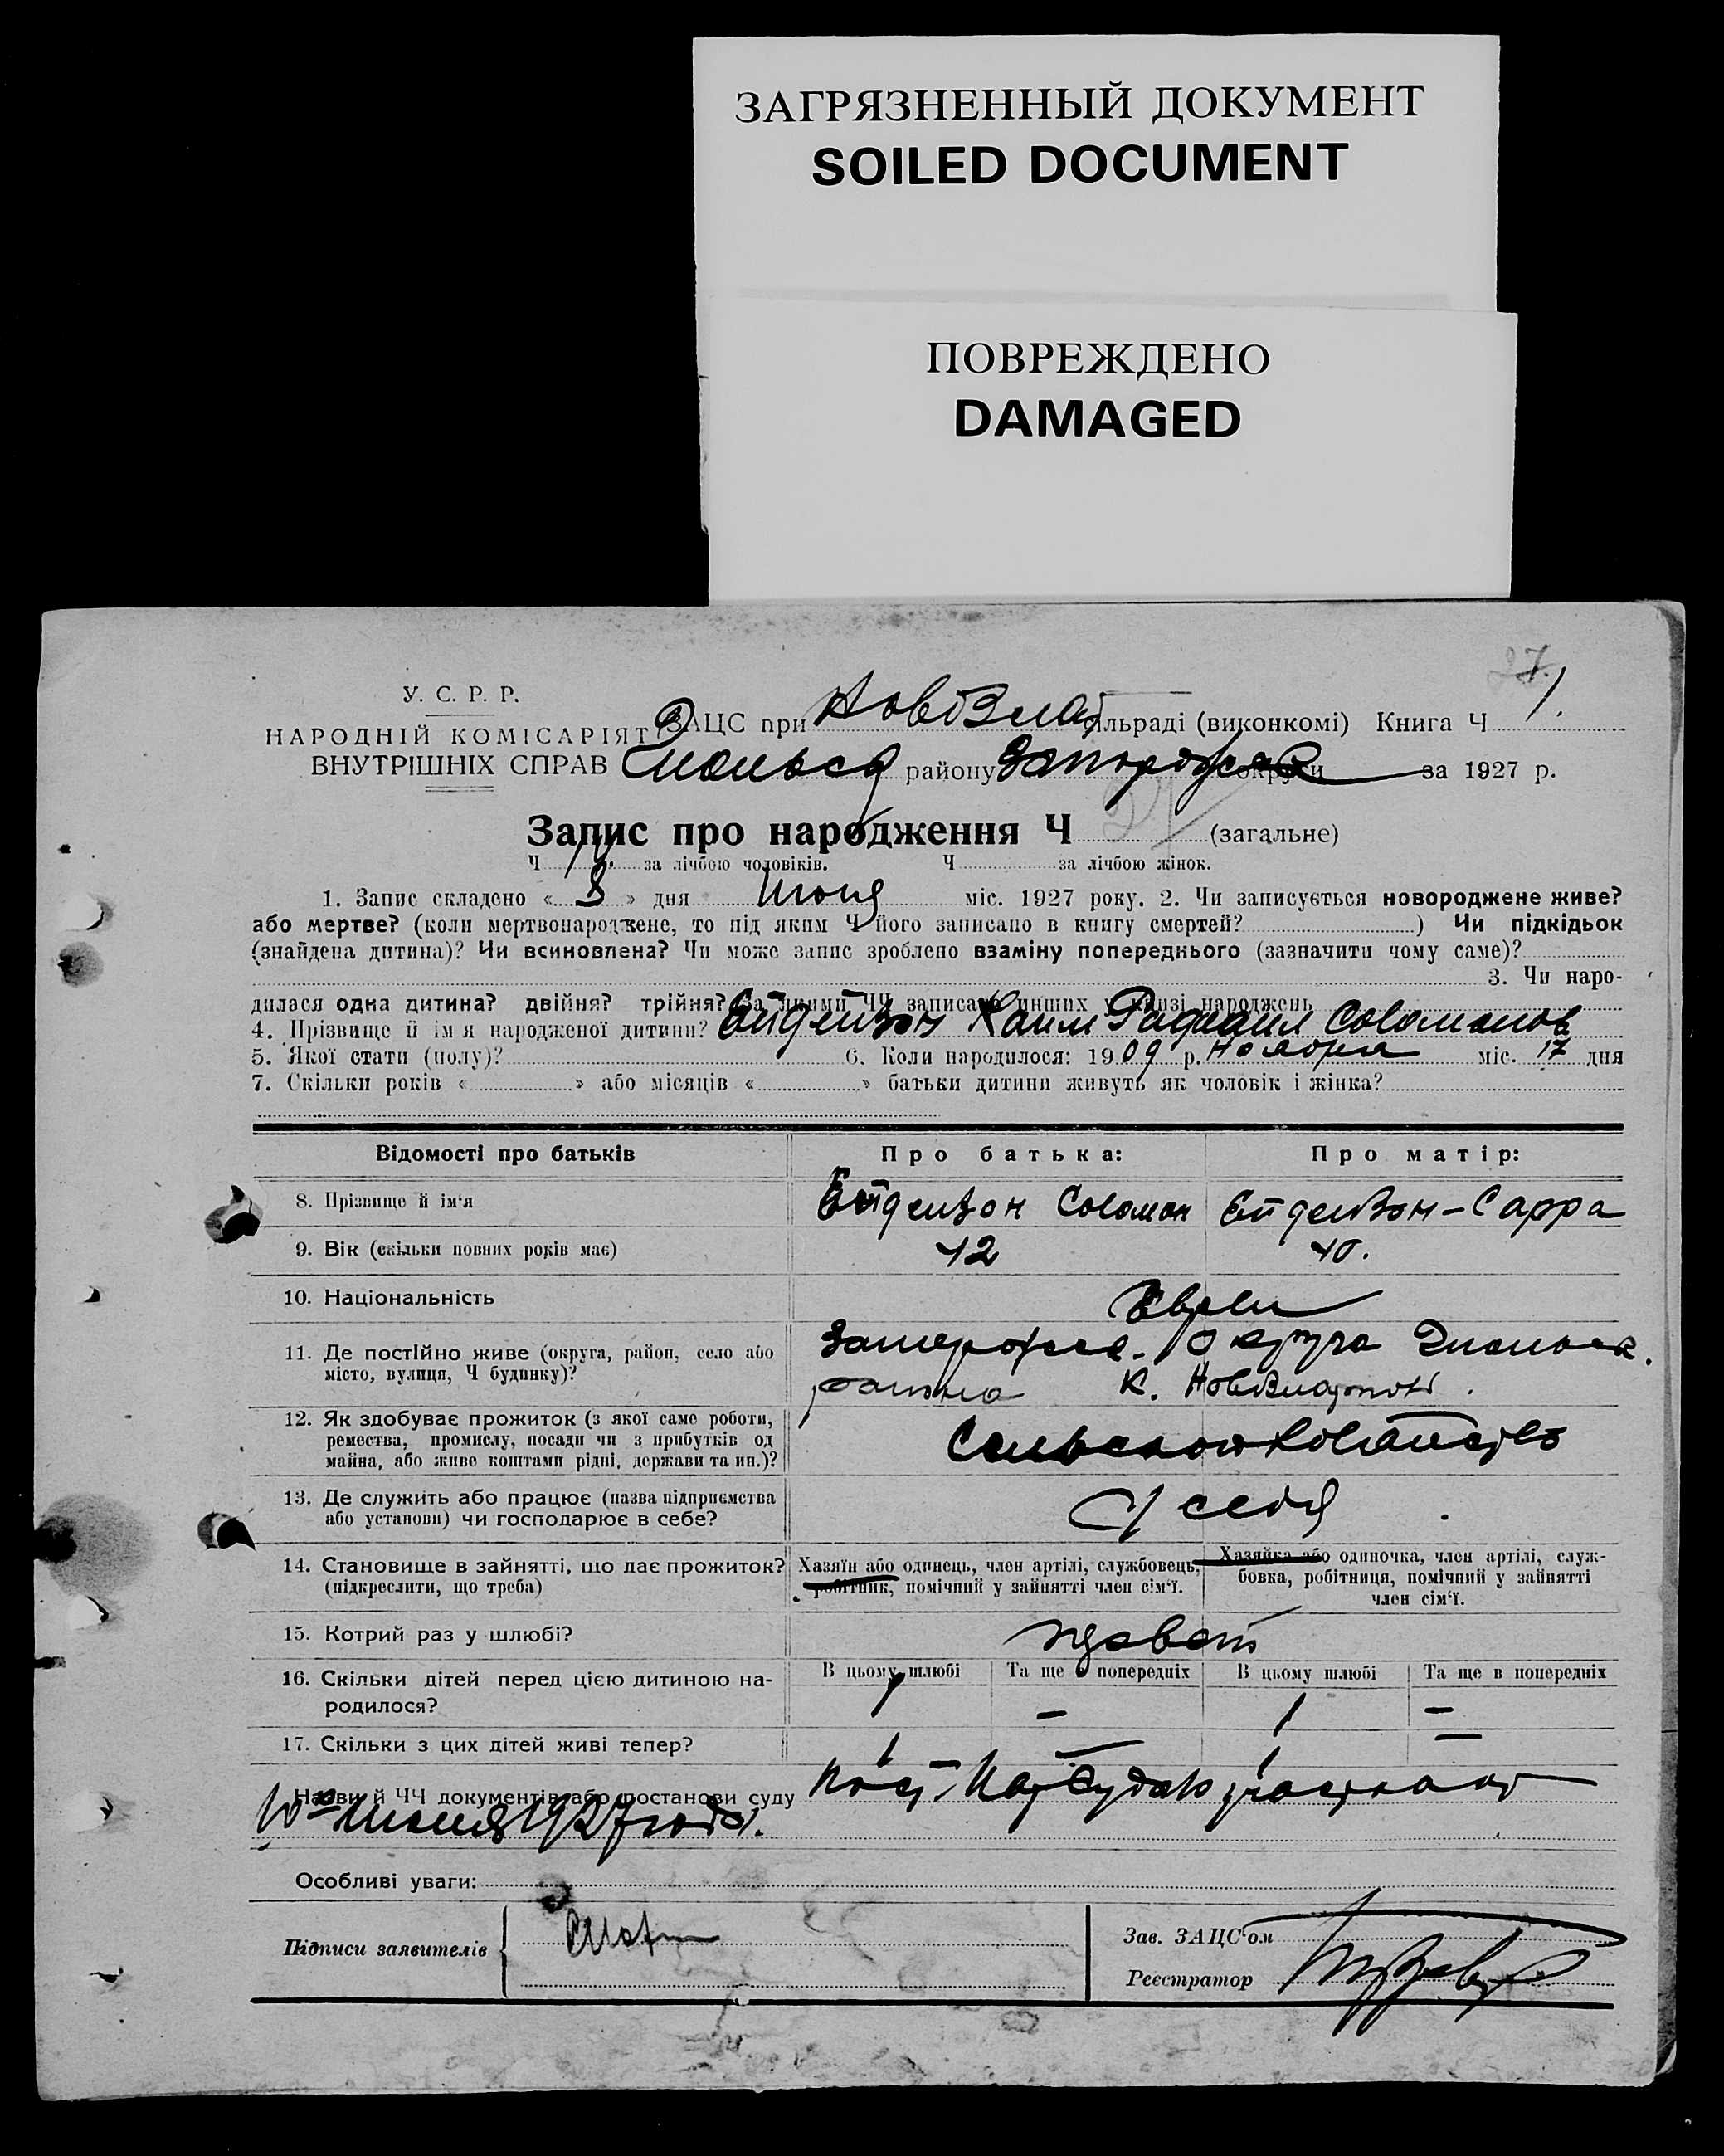 ЗАГРЯЗНЕННЫЙ ДОКУМЕНТ
SOILED DOCUMENT
ПОВРЕЖДЕНО
DAMAGED
27.
У. С. Р. Р.
НАРОДНІЙ КОМІСАРІЯТ
ВНУТРІШНІХ СПРАВ
ЗАЦС при НовоЗлат сільраді (виконкомі) Книга Ч 1.
району Запорожск округи за 1927 р.
Запис про народження Ч (загальне)
Ч за лічбою чоловіків. Ч за лічбою жінок.
1. Запис складено « 8 » дня Июня міс. 1927 року. 2. Чи записується новороджене живе?
або мертве? (коли мертвонароджене, то під яким Ч його записано в книгу смертей? ) Чи підкідьок
(знайдена дитина)? Чи всиновлена? Чи може запис зроблено взаміну попереднього (зазначити чому саме)?
3. Чи наро-
дилася одна дитина? двійня? трійня? За якими ЧЧ записано инших у книзі народжень
4. Прізвище й ім'я народженої дитини? Ейдензон Хаим Рафаил Соломонов
5. Якої стати (полу)? 6. Коли народилося: 1909 р. Ноября міс. 17 дня
7. Скільки років « » або місяців « » батьки дитини живуть як чоловік і жінка?
Відомості про батьків Про батька: Про матір:
8. Прізвище й ім'я Ейдензон Соломон Ейдензон-Сарра
9. Вік (скільки повних років має) 42 40.
10. Національність Евреи
11. Де постійно живе (округа, район, село або
місто, вулиця, Ч будинку)?
Запорожск. Округа
района К. НовоЗлатополь.
12. Як здобуває прожиток (з якої саме роботи,
ремества, промислу, посади чи з прибутків од
майна, або живе коштами рідні, держави та ин.)?
13. Де служить або працює (назва підприємства
або установи) чи господарює в себе?
У себя
14. Становище в зайнятті, що дає прожиток?
(підкреслити, що треба)
Хазяїн або одинець, член артілі, службовець,
робітник, помічний у зайнятті член сім'ї.
Хазяйка або одиночка, член артілі, служ-
бовка, робітниця, помічний у зайнятті
член сім'ї.
15. Котрий раз у шлюбі?
16. Скільки дітей перед цією дитиною на-
родилося?
В цьому шлюбі Та ще в попередніх В цьому шлюбі Та ще в попередніх
1 – 1 –
17. Скільки з цих дітей живі тепер? 1 – 1 –
Назви й ЧЧ документів або постанови суду Пост. Нар Суда участка от
10го Июня 1927 года.
Особливі уваги:
Підписи заявителів
Зав. ЗАЦС'ом
Реєстратор